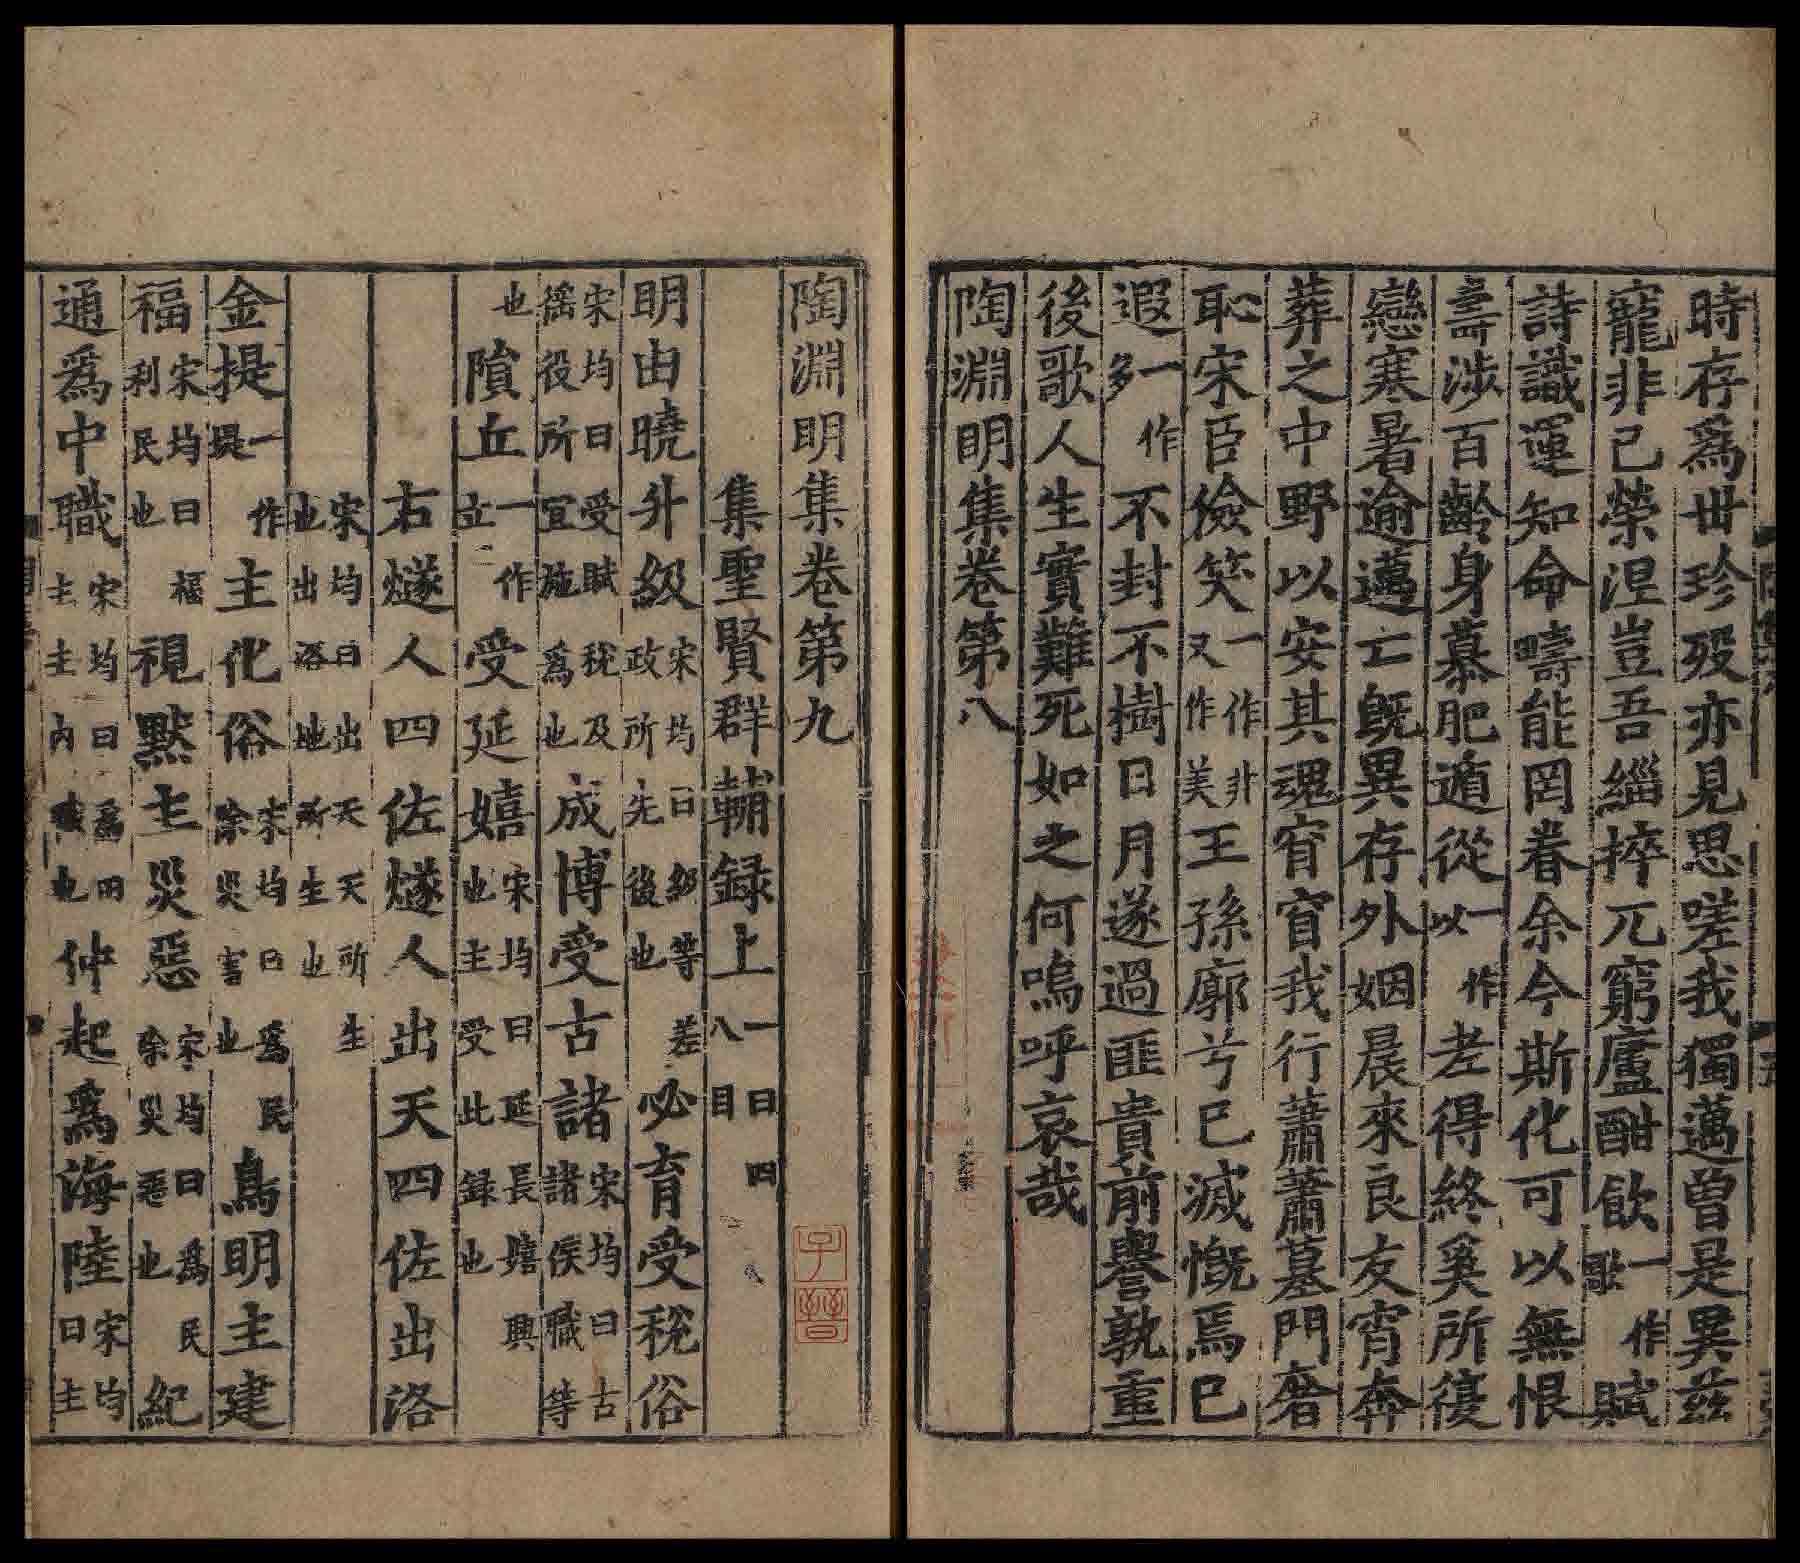 時存爲丗珍歿亦見思嗟我獨邁曾是異茲
寵非己榮涅豈吾緇捽兀窮廬酣飲一作歌賦
詩識運知命疇能罔眷余今斯化可以無恨
壽涉百齡身慕肥遁從一作以老得終奚所復
戀寒暑逾邁亡旣異存外姻晨來良友宵奔
葬之中野以安其魂窅窅我行蕭蕭墓門奢
恥宋臣儉笑一作非又作美王孫廓兮已滅慨焉已
遐一作多不封不樹日月遂過匪貴前譽孰重
後歌人生實難死如之何嗚呼哀哉
陶淵明集卷第八
陶淵明集卷第九
子晉
集聖賢群輔録上一曰四八目
明由曉升級宋均曰級等差政所先後也必育受稅俗
宋均曰受賦稅及徭役所宜施爲也成博受古諸宋均曰古諸侯職等
也隕丘一作立受延嬉宋均曰延長嬉興也主受此録也
右燧人四佐燧人出天四佐出洛
宋均曰出天天所生也出洛地所生也
金提一作堤主化俗宋均曰爲民除災害也鳥明主建
福宋均曰福利民也視默主災惡宋均曰爲民除災惡也紀
通爲中職宋均曰爲田主主内職也仲起爲海陸宋均曰主